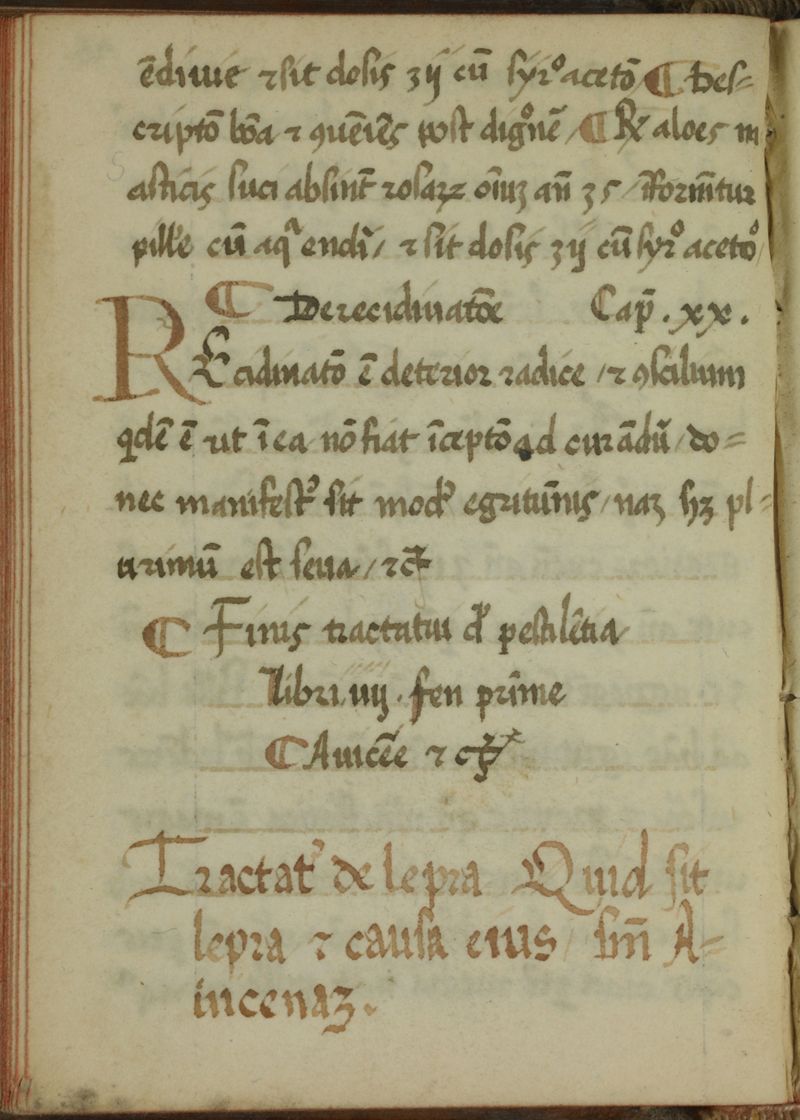 ēdiuie ⁊ sit dosis ʒij cū syrᵒ acetō ¶ Des-
criptō bōa ⁊ ꝯueniēs post digᵒnē / ¶ ℞ aloes m
asticis suci absint̄ rosaꝝ oīuꝫ an̄ ʒs / ⁊ formētur
pillᵉe cū aqᵃ endī / ⁊ sit dosis ʒij cū syrᵒ acetoᵒ /
¶ De recidiuatōe Cap̄ . xx .
REcidiuatō ē deterior radice / ⁊ ꝯsilium
qͥdē ē ut ī ea nō fiat īceptō ad curādū / do=
nec manifestꝰ sit modꝰ egritudīnis / naꝫ hꝫ pl=
urimū est seua / ⁊c̄
¶ Finis tractatui dͤ pestilētia
libri iiij . fen prīme
¶ Auicēe ⁊ cꝭ
Tractatꝰ de lepra Quid sit
lepra ⁊ causa eius / scd̄m A=
uicenaꝫ .